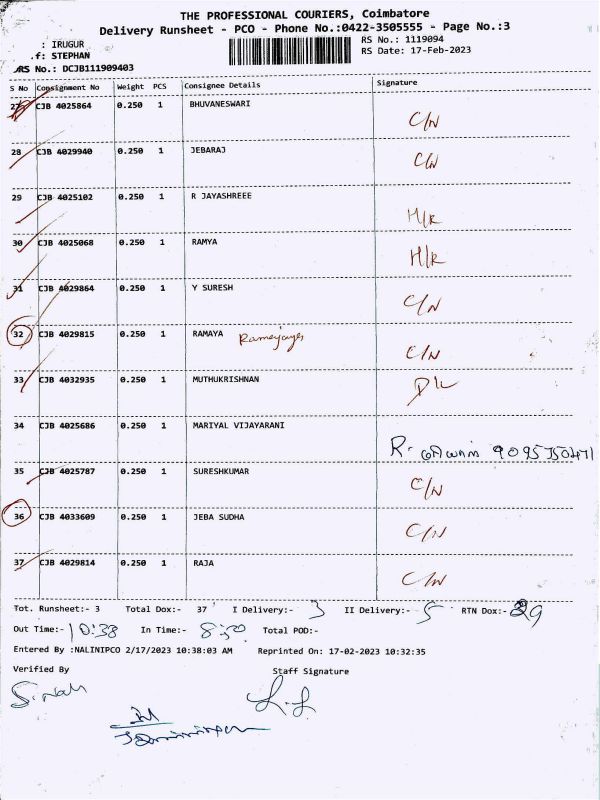 THE PROFESSIONAL COURIERS, Coimbatore
Delivery Runsheet - PCO - Phone No.:0422-3505555 - Page No.:3
: IRUGUR RS No.: 1119094
.f: STEPHAN RS Date: 17-Feb-2023
DRS No.: DCJB111909403
S No Consignment No Weight PCS Consignee Details Signature
27 CJB 4025864 0.250 1 BHUVANESWARI C/N
28 CJB 4029940 0.250 1 JEBARAJ C/N
29 CJB 4025102 0.250 1 R JAYASHREEE H/K
30 CJB 4025068 0.250 1 RAMYA H/K
31 CJB 4029864 0.250 1 Y SURESH C/N
32 CJB 4029815 0.250 1 RAMAYA C/N
33 CJB 4032935 0.250 1 MUTHUKRISHNAN D/L
34 CJB 4025686 0.250 1 MARIYAL VIJAYARANI R.
35 CJB 4025787 0.250 1 SURESHKUMAR C/N
36 CJB 4033609 0.250 1 JEBA SUDHA C/N
37 CJB 4029814 0.250 1 RAJA C/N
Tot. Runsheet:- 3 Total Dox:- 37 I Delivery:- 3 II Delivery:- 5 RTN Dox:- 29
Out Time:- 10:38 In Time:- 8:30 Total POD:-
Entered By :NALINIPCO 2/17/2023 10:38:03 AM Reprinted On: 17-02-2023 10:32:35
Verified By Staff Signature